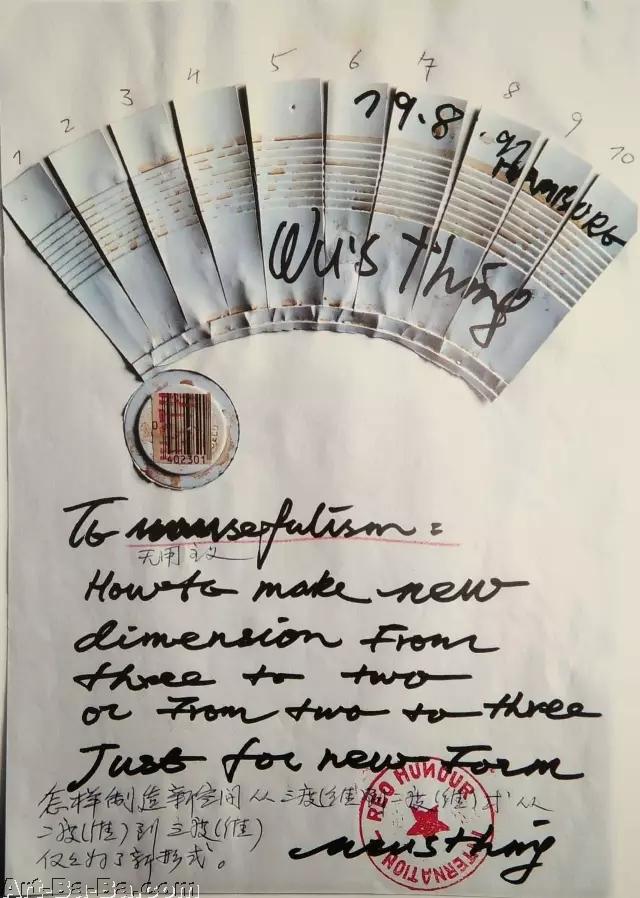 1 2 3 4 5 6 7 8 9 10
19.8.92
HAMBURG
Wu's thing
402301
To
无用主义
How to make new
dimension From
three to two
or From two to three
Just for new Form
怎样制造新空间从三度(维)到二度(维)或从
二度(维)到三度(维)
仅仅为了新形式。
RED HUMOUR
Art-Ba-Ba.com